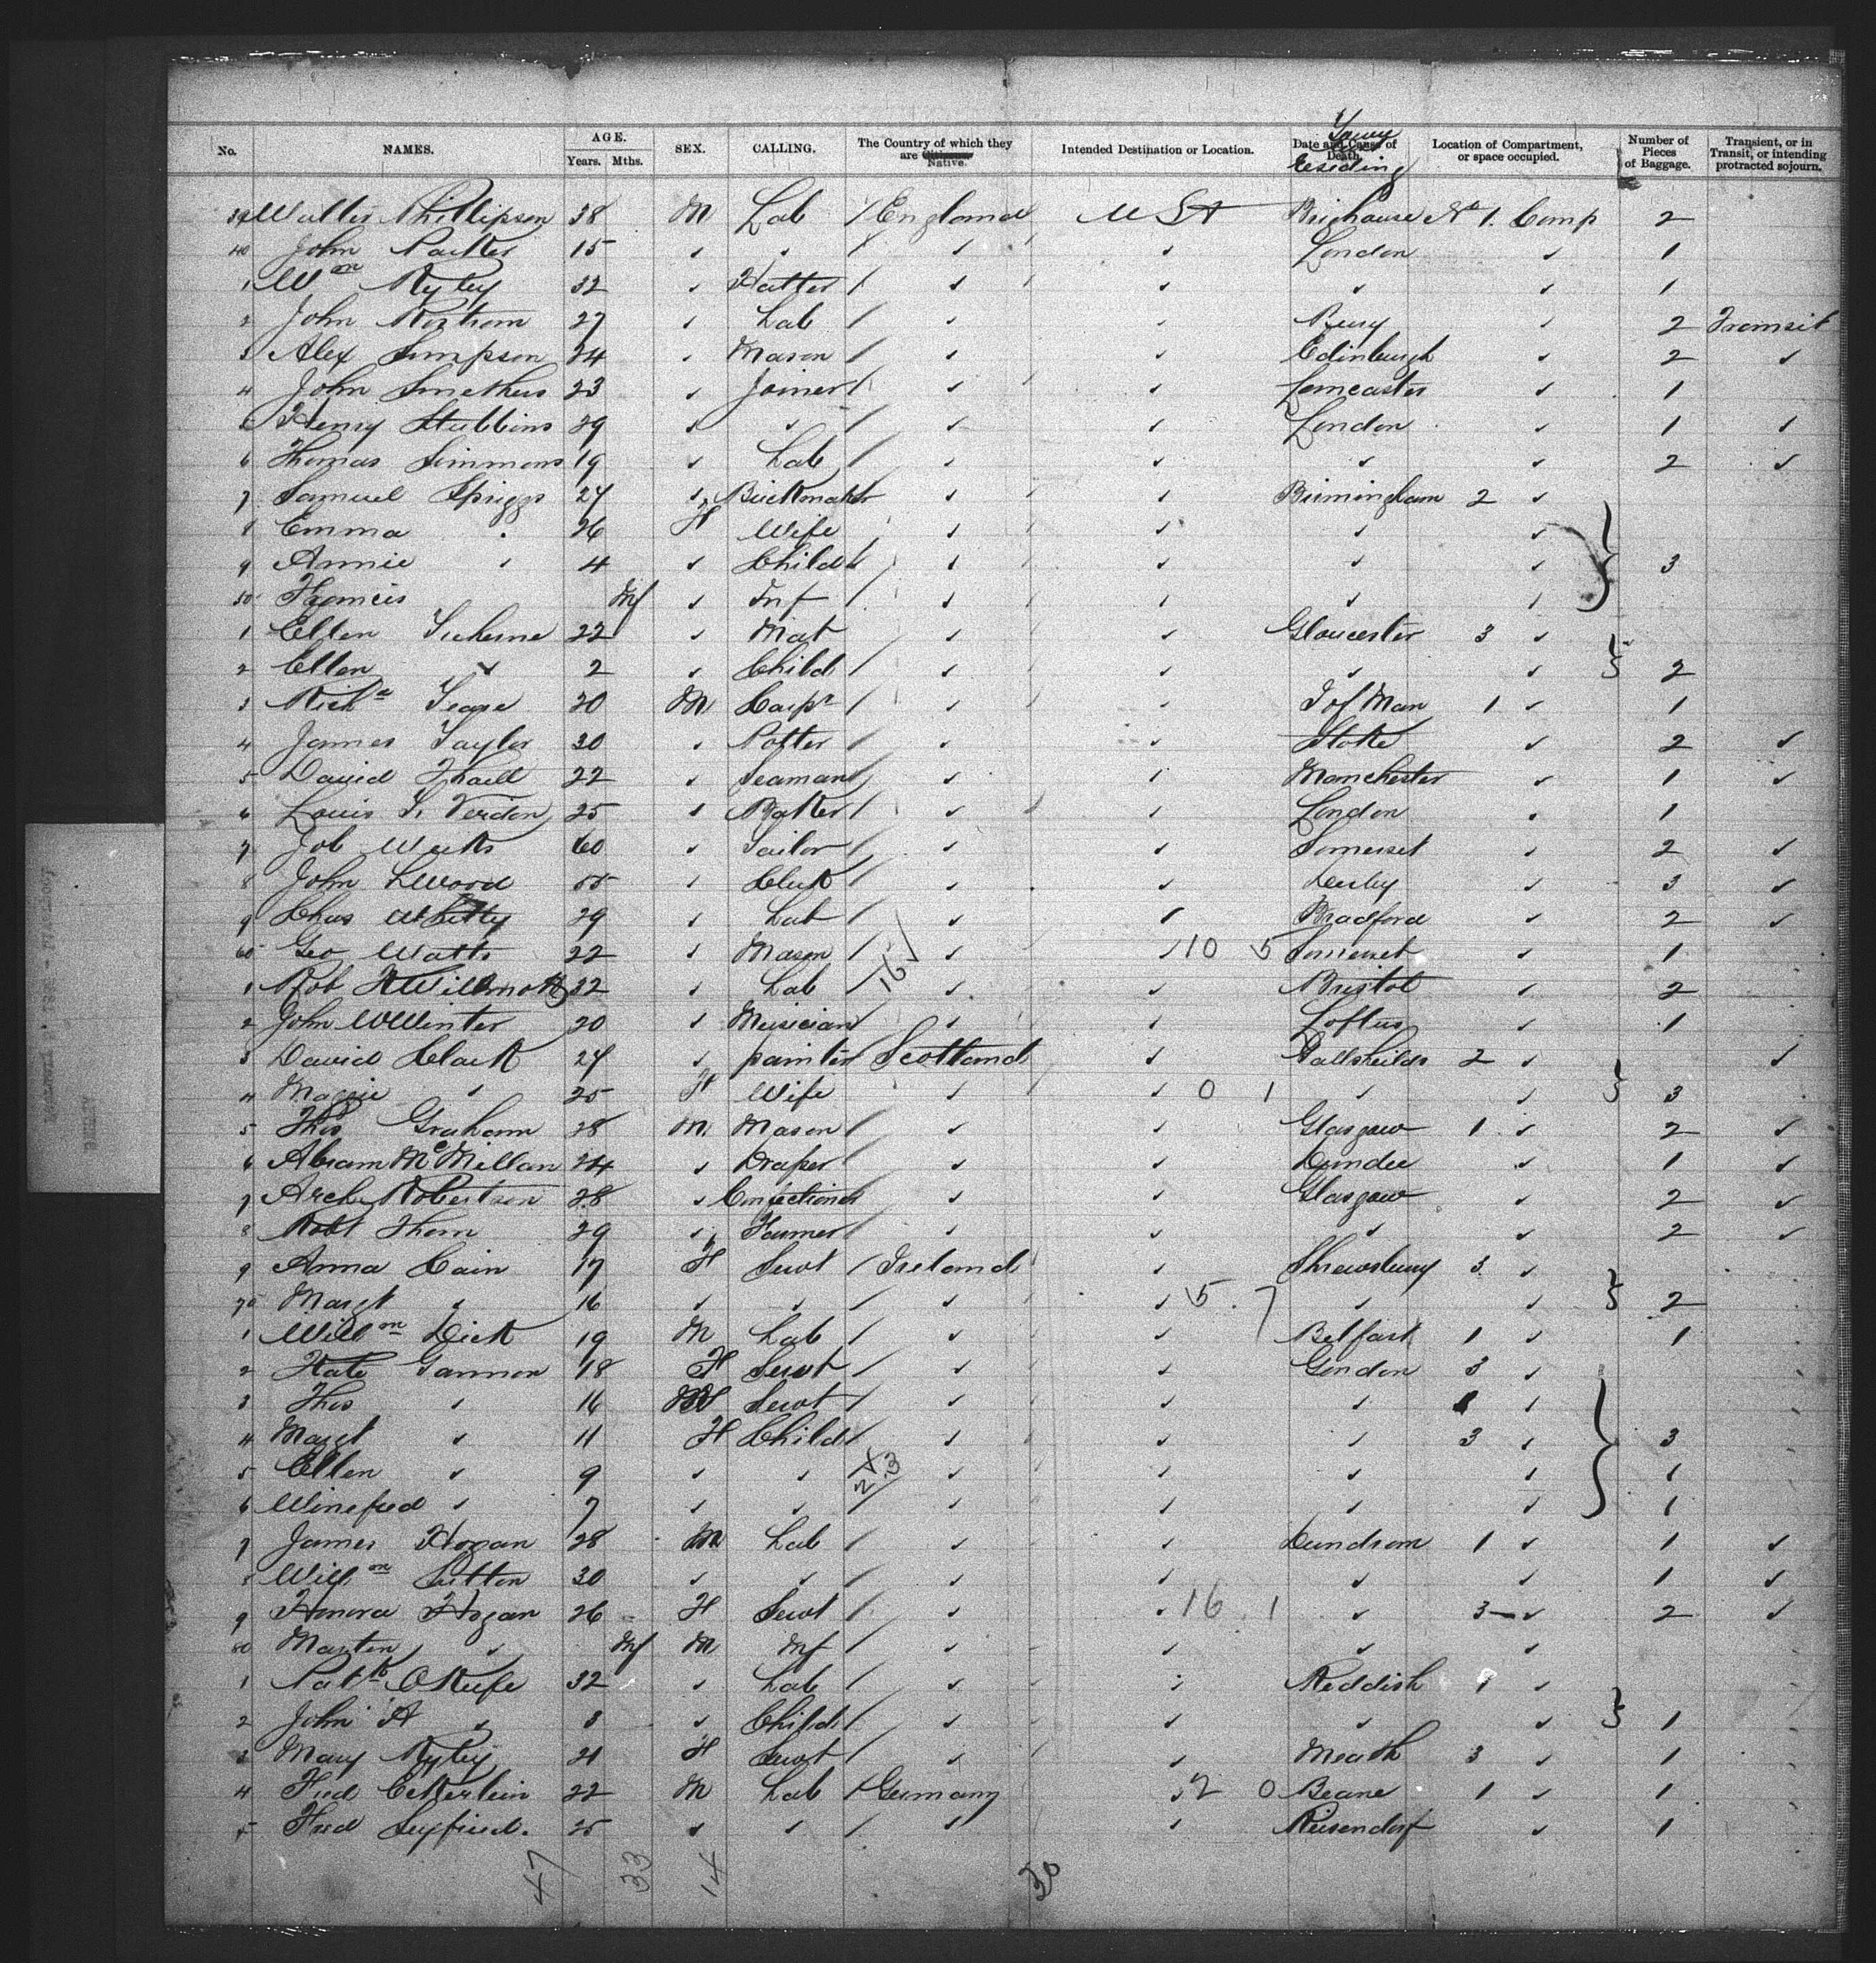 No. NAMES. AGE. Years. Mths. SEX. CALLING. The Country of which they are Citizens Native. Intended Destination or Location. Date and Cause of Death Town residing Location of Compartment, or space occupied. Number of Pieces of Baggage. Transient, or in Transit, or intending protracted sojourn.
39 Walter Phillipson 38 M Lab / England USA Brighouse No 1. Comp 2
40 John Parker 15 ✓ ✓ / ✓ ✓ London ✓ 1
1 Wm Ryley 32 ✓ Hatter / ✓ ✓ ✓ ✓ 1
2 John Rostrom 27 ✓ Lab / ✓ ✓ Bury ✓ 2 Transit
3 Alex Simpson 24 ✓ Mason / ✓ ✓ Edinburgh ✓ 2 ✓
4 John Smethurs 23 ✓ Joiner / ✓ ✓ Lancaster ✓ 1
5 Henry Stubbins 29 ✓ ✓ / ✓ ✓ London ✓ 1 ✓
6 Thomas Simmons 19 ✓ Lab / ✓ ✓ ✓ ✓ 2 ✓
7 Samuel Spriggs 27 ✓ Brickmaker ✓ ✓ Birmingham 2 ✓
8 Emma ✓ 26 F Wife / ✓ ✓ ✓ ✓
9 Annie ✓ 4 ✓ Child / ✓ ✓ ✓ ✓ 3
50 Francis Inf ✓ Inf / ✓ ✓ ✓ ✓
1 Ellen 22 ✓ Mat / ✓ ✓ Gloucester 3 ✓
2 Ellen ✓ 2 ✓ Child / ✓ ✓ ✓ ✓ 2
3 Richd Teare 20 M Carpr / ✓ ✓ I of Man 1 ✓ 1
4 James Taylor 30 ✓ Potter / ✓ ✓ Stoke ✓ 2 ✓
5 David Thaill 22 ✓ Seaman / ✓ ✓ Manchester ✓ 1 ✓
6 Louis S. Verdon 25 ✓ Baker / ✓ ✓ London ✓ 1
7 Job Weeks 60 ✓ Tailor / ✓ ✓ Somerset ✓ 2 ✓
8 John L Wood 55 ✓ Clerk / ✓ ✓ Derby ✓ 3 ✓
9 Chas Whitty 29 ✓ Lab / ✓ ✓ Bradford ✓ 2 ✓
60 Geo Watts 22 ✓ Mason / ✓ ✓ 10 5 Somerset ✓ 1
1 Rob H Willmott 32 ✓ Lab / ✓ ✓ Bristol ✓ 2
2 John W Winter 20 ✓ Musician / ✓ ✓ Loftus ✓ 1
3 David Clark 24 ✓ painter / Scotland ✓ Gallsheilds 2 ✓ ✓
4 Maggie ✓ 25 F Wife ✓ ✓ 0 1 ✓ ✓ 3
5 Thos Graham 28 M Mason / ✓ ✓ Glasgow 1 ✓ 2 ✓
6 Abram McMillan 24 ✓ Draper / ✓ ✓ Dundee ✓ 1 ✓
7 Arch Robertson 28 ✓ Confectioner ✓ ✓ Glasgow ✓ 2 ✓
8 Robt Thom 29 ✓ Farmer / ✓ ✓ ✓ ✓ 2 ✓
9 Anna Cain 17 F Servt / Ireland ✓ Shrewsbury 3 ✓
70 Margt ✓ 16 ✓ ✓ / ✓ ✓ 5. 7 ✓ ✓ 2
1 Willm Dick 19 M Lab / ✓ ✓ Belfast 1 ✓ 1
2 Kate Gannon 18 F Servt / ✓ ✓ Gondon 3 ✓
3 Thos ✓ 16 M Servt / ✓ ✓ ✓ 1 ✓
4 Margt ✓ 11 F Child / ✓ ✓ ✓ 3 ✓ 3
5 Ellen ✓ 9 ✓ ✓ / ✓ ✓ ✓ ✓ 1
6 Winefred ✓ 7 ✓ ✓ / ✓ ✓ ✓ ✓ 1
7 James Hogan 28 M Lab / ✓ ✓ Dundrom 1 ✓ 1 ✓
8 Willm Sutton 30 ✓ ✓ / ✓ ✓ ✓ ✓ 1 ✓
9 Honora Hogan 26 F Servt / ✓ ✓ 16 1 ✓ 3 ✓ 2 ✓
80 Marten ✓ Inf M Inf / ✓ ✓ ✓ ✓
1 Patk OKeefe 32 ✓ Lab / ✓ ✓ Reddish 1 ✓
2 John A ✓ 8 ✓ Child / ✓ ✓ ✓ ✓ 1
3 Mary Ryley 21 F Servt / ✓ ✓ Meath 3 ✓ 1
4 Fred Eckerlein 22 M Lab / Germany ✓ 2 0 Beane 1 ✓ 1
5 Fred Seyfried. 25 ✓ ✓ / ✓ ✓ Reisendorf ✓ 1
47 33 14 30